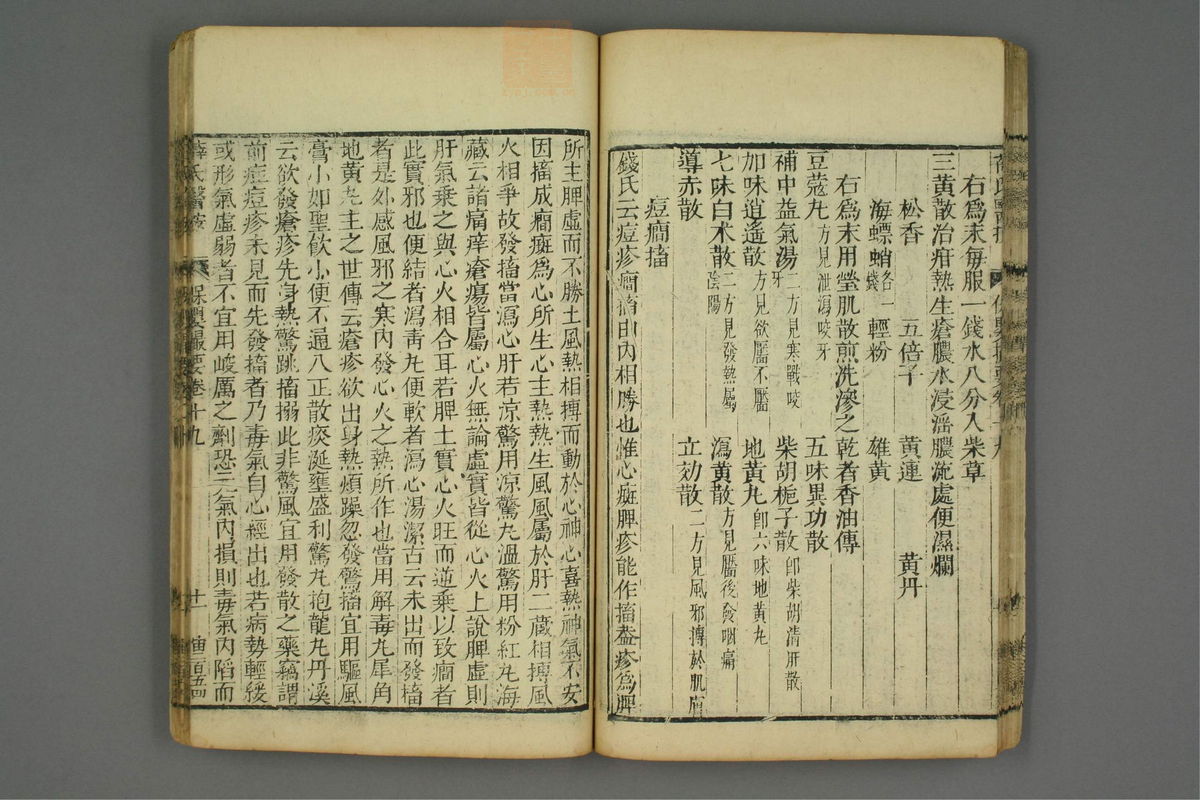 右爲末每服一錢水八分入柴草
三黃散治疳熱生瘡膿水浸滛膿流處便濕爛
松香 五倍子 黃連 黃丹
海螵蛸各一錢 輕粉 雄黃
右爲末用瑩肌散煎洗滲之乾者香油傅
豆蔻丸方見泄瀉咬牙 五味異功散
補中益氣湯二方見寒戰咬牙 柴胡梔子散即柴胡清肝散
加味逍遙散方見欲靨不靨 地黃丸即六味地黃丸
七味白术散二方見發熱屬陰陽 瀉黃散方見靨後發咽痛
導赤散 立効散二方見風邪搏於肌膚
痘癇搐
錢氏云痘疹癇搐由内相勝也惟心癍脾疹能作搐葢疹爲脾
所主脾虛而不勝土風熱相搏而動於心神心喜熱神氣不安
因搐成癇癍爲心所生心主熱熱生風風屬於肝二藏相搏風
火相爭故發搐當瀉心肝若凉驚用凉驚丸溫驚用粉紅丸海
藏云諸痛痒瘡瘍皆屬心火無論虛實皆從心火上說脾虛則
肝氣乗之與心火相合耳若脾土實心火旺而逆乗以致癇者
此實邪也便結者瀉青丸便軟者瀉心湯潔古云未出而發搐
者是外感風邪之寒内發心火之熱所作也當用解毒丸犀角
地黃丸主之世傳云瘡疹欲出身熱煩躁忽發驚搐宜用驅風
膏小如聖飲小便不通八正散痰涎壅盛利驚丸抱龍丸丹溪
云欲發瘡疹先身熱驚跳搐搦此非驚風宜用發散之藥竊謂
前症痘疹未見而先發搐者乃毒氣自心經出也若病勢輕緩
或形氣虛弱者不宜用峻厲之劑恐元氣内損則毒氣内陷而
薛氏醫按 保嬰撮要卷十九 十一